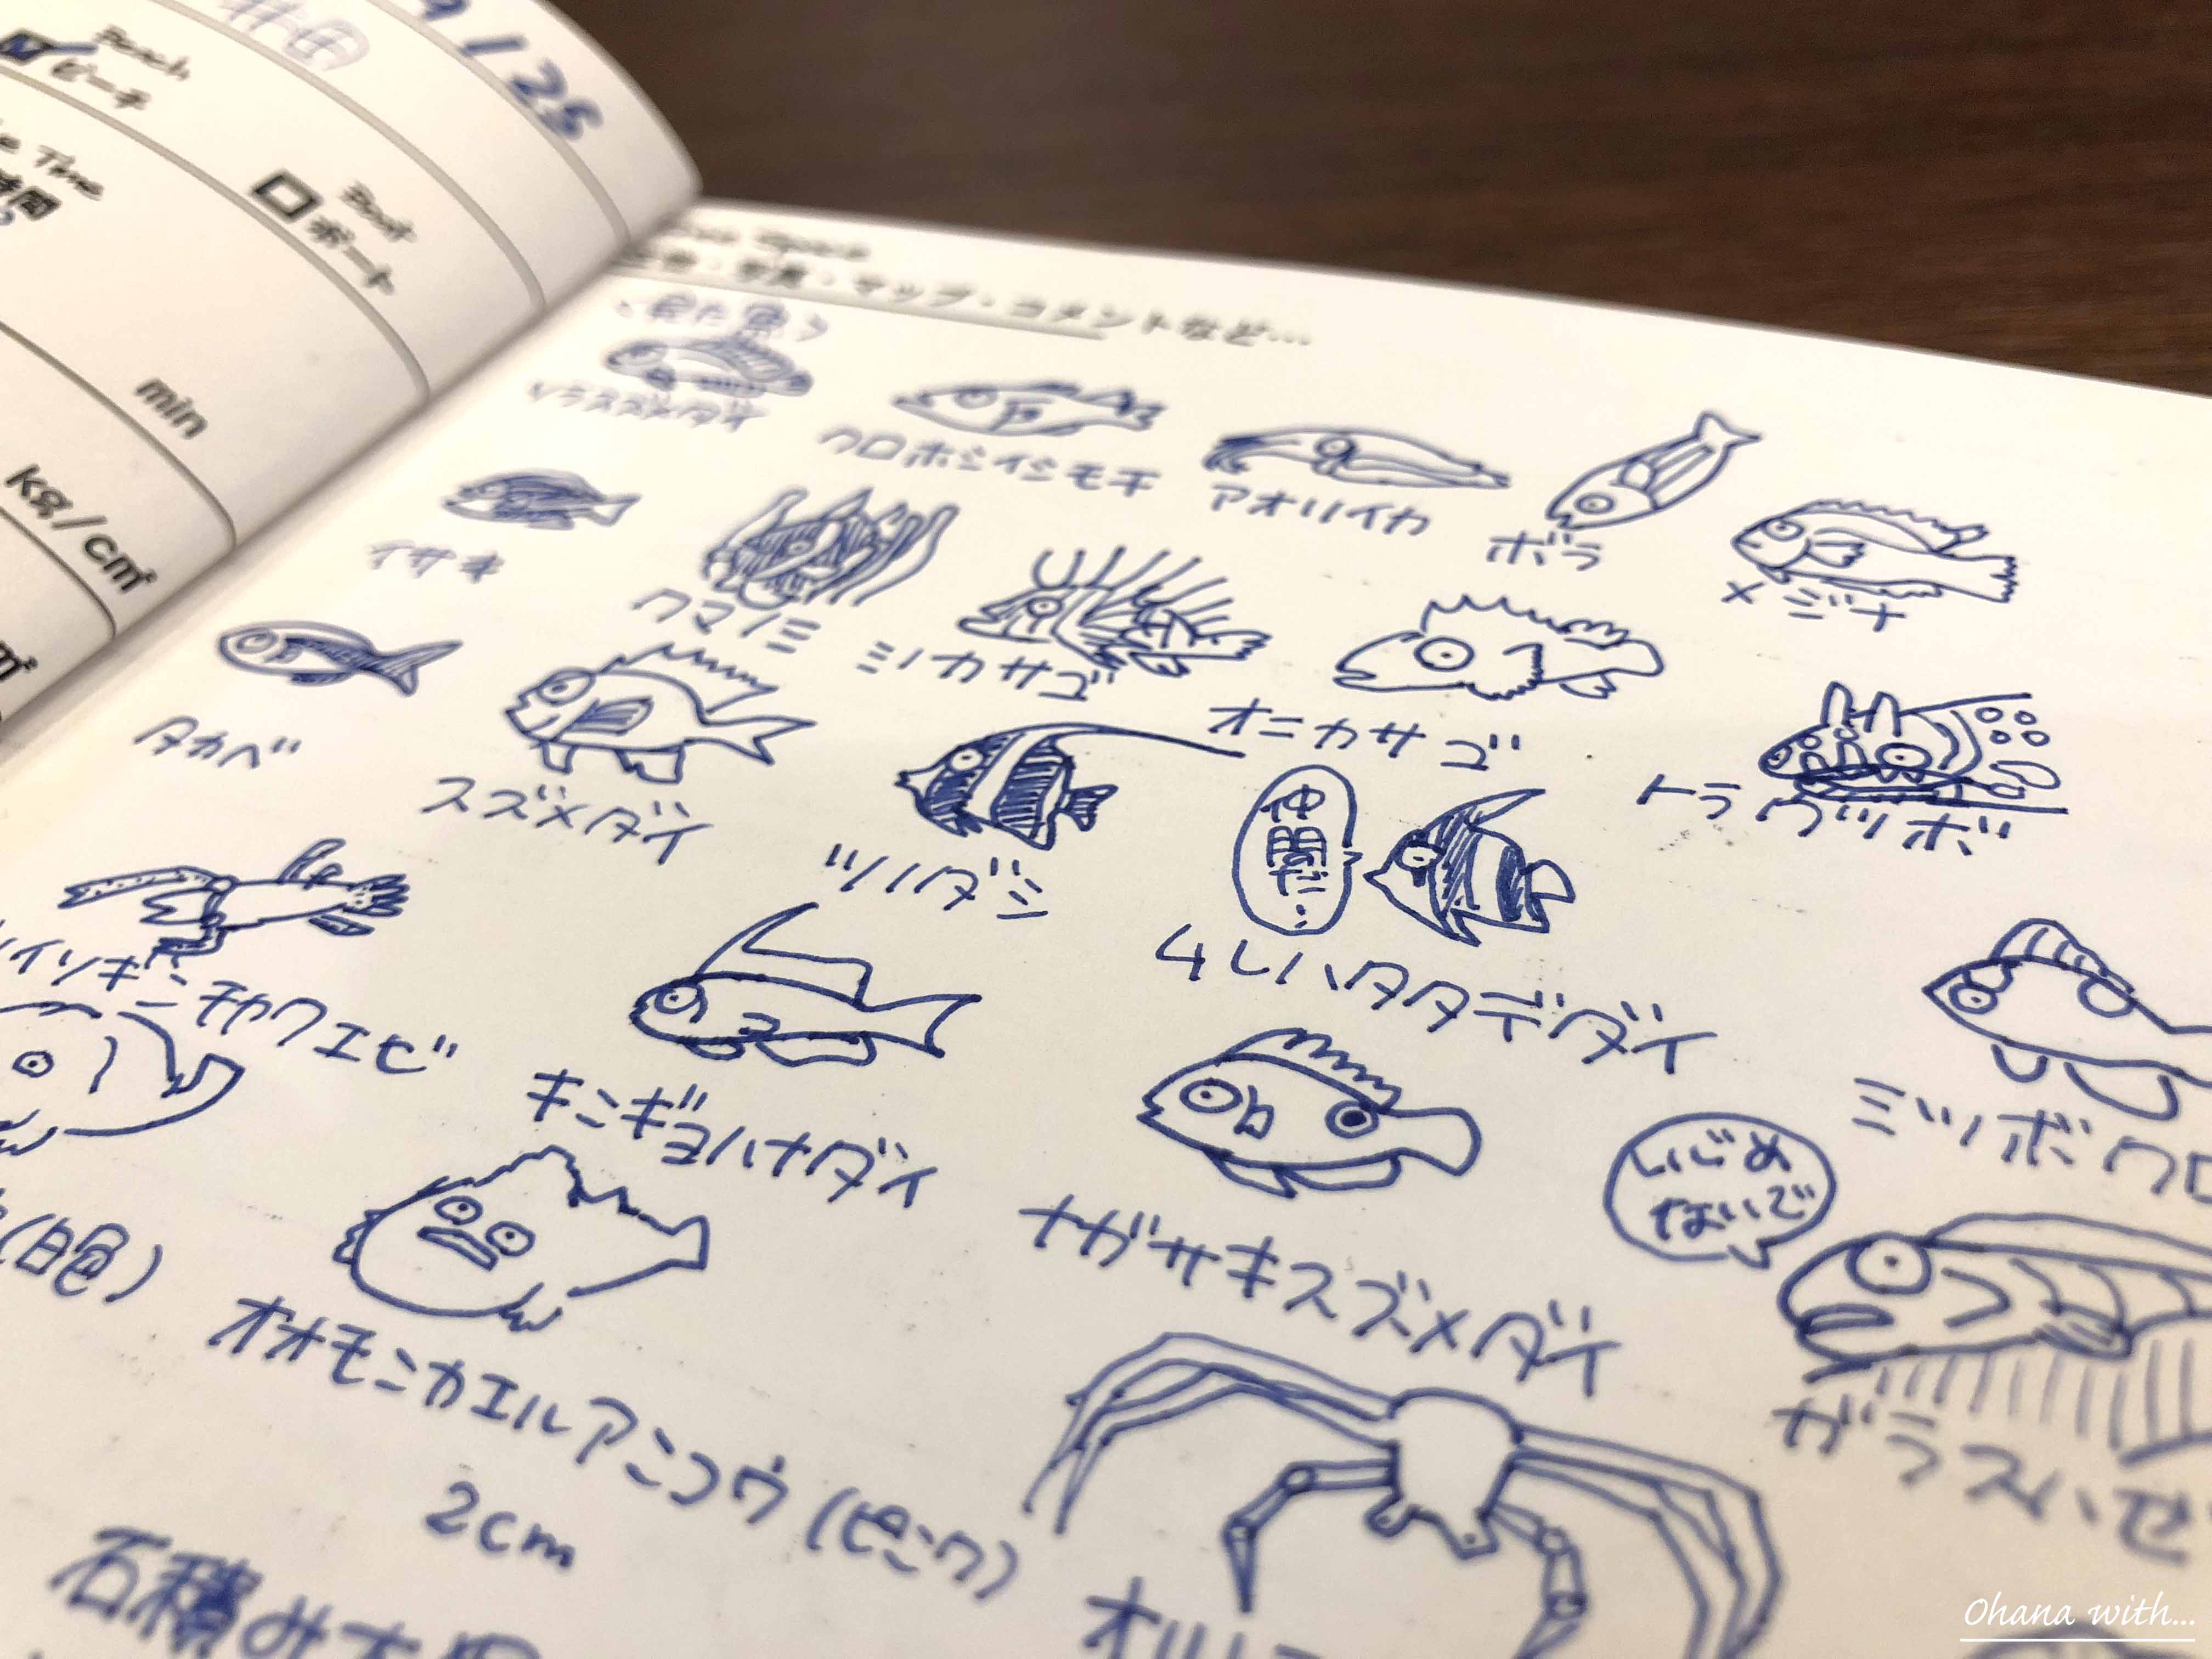 9/25
Beach
ビーチ
Boat
ボート
Time
時間
min
kg/cm²
Space
写真・マップ・コメントなど…
〈見た魚〉
ソラスズメダイ
クロホシイシモチ
アオリイカ
ボラ
メジナ
イサキ
クマノミ
ミノカサゴ
オニカサゴ
トラウツボ
タカベ
スズメダイ
ツノダシ
仲間だ…
ムレハタタテダイ
イソギンチャクエビ
キンギョハナダイ
ナガサキスズメダイ
ミツボシクロ
いじめ
ないで
(白色)
オオモンカエルアンコウ(ピンク)
2cm
ガラスハゼ
石積み
オルト
Ohana with...